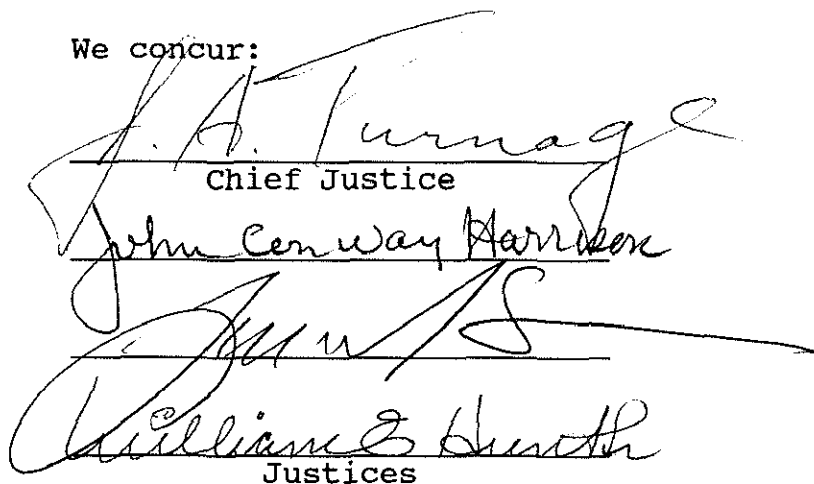 We concur:
J. A. Turnage
Chief Justice
John Conway Harrison
William E Hunt
Justices